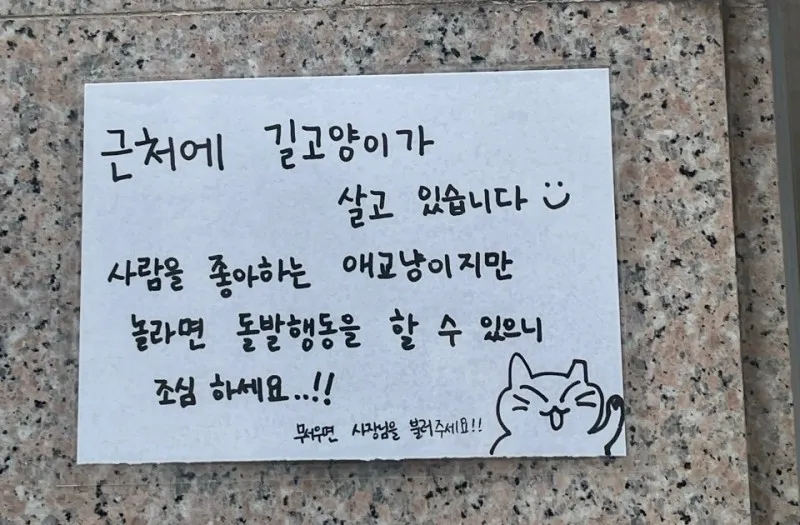 근처에 길고양이가
살고 있습니다
사람을 좋아하는 애교냥이지만
놀라면 돌발행동을 할 수 있으니
조심 하세요..!!
무서우면 사장님을 불러주세요!!